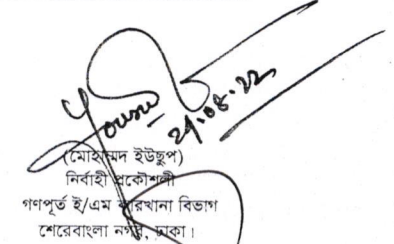 Yousuf
(মোহাম্মদ ইউছুপ)
নির্বাহী প্রকৌশলী
গণপূর্ত ই/এম কারখানা বিভাগ
শেরেবাংলা নগর, ঢাকা।